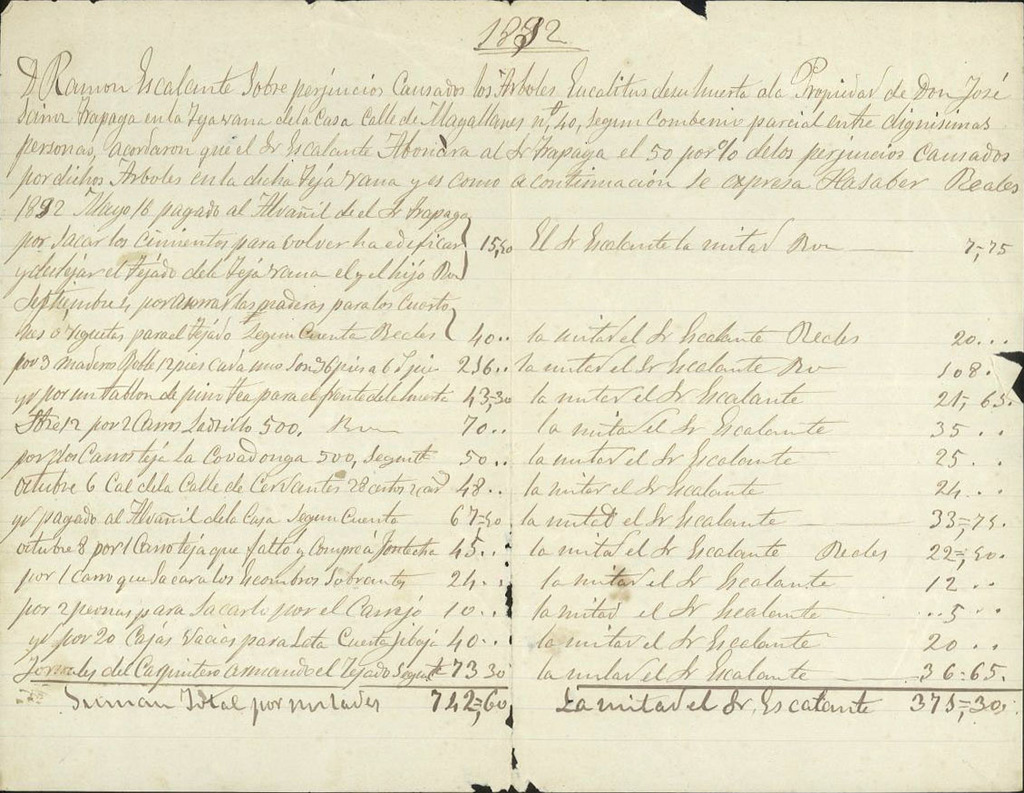 1892
D Ramon Escalante Sobre perjuicios Causados los Arboles Eucalitus desu huerta ala Propiedad de Don José
Trapaga en la Tejavana dela Casa Calle de Magallanes nº 40, segun Combenio parcial entre dignisimas
personas, acordaron que el Sr Escalante Abonara al Sr trapaga el 50 por % delos perjuicios causados
por dichos Arboles en la dicha Tejavana y es como a continuación se expresa Hasaber Reales
1892 Mayo 16 pagado al Alvañil de el Sr trapaga
por Sacar los Cimientos para volver ha edeficar 15,50 El Sr Escalante la mitad Rvn 7,,75
y destejar el Tejado dela Tejavana el y el hijo Rvn
Septiembre 4, por aserrar las maderas para los Cuarto
nes o Viguetas para el Tejado Segun Cuenta Reales 40.. la mitad el Sr Escalante Reales 20...
por 3 maderos Roble 12 pies cada uno Son 36 pies a 6 216.. la mitad el Sr Escalante Rvn 108.
yd por un tablon de pino tea para el frente dela huerta 43,30 la mitad el Sr Escalante 21, 65.
12 por 2 Carros Ladrillo 500. Rvn 70.. la mitad el Sr Escalante 35..
por dos Carros teja la Covadonga 500, Segun 50.. la mitad el Sr Escalante 25..
Octubre 6 Cal dela Calle de Cervantes 28 48.. la mitad el Sr Escalante 24..
yd pagado al Alvañil dela Casa Segun Cuenta 67=50 la mitad el Sr Escalante 33=,75.
octubre 8 por 1 Carro teja que falto y Compre a 45.. la mitad el Sr Escalante Reales 22=,50.
por 1 carro que Sacara los Escombros Sobrantes 24.. la mitad el Sr Escalante 12..
por 2 peonas para Sacarlo por el Carrejo 10.. la mitad el Sr Escalante ..5..
yd por 20 Cajas Vacias para Lata Cuenta 40.. la mitad el Sr Escalante 20..
Jornales del Carpintero armando el Tejado Segun 73 30 la mitad el Sr Escalante 36=65.
Suman Total por mitades 742=,60 La mitad el Sr, Escalante 371=,30,